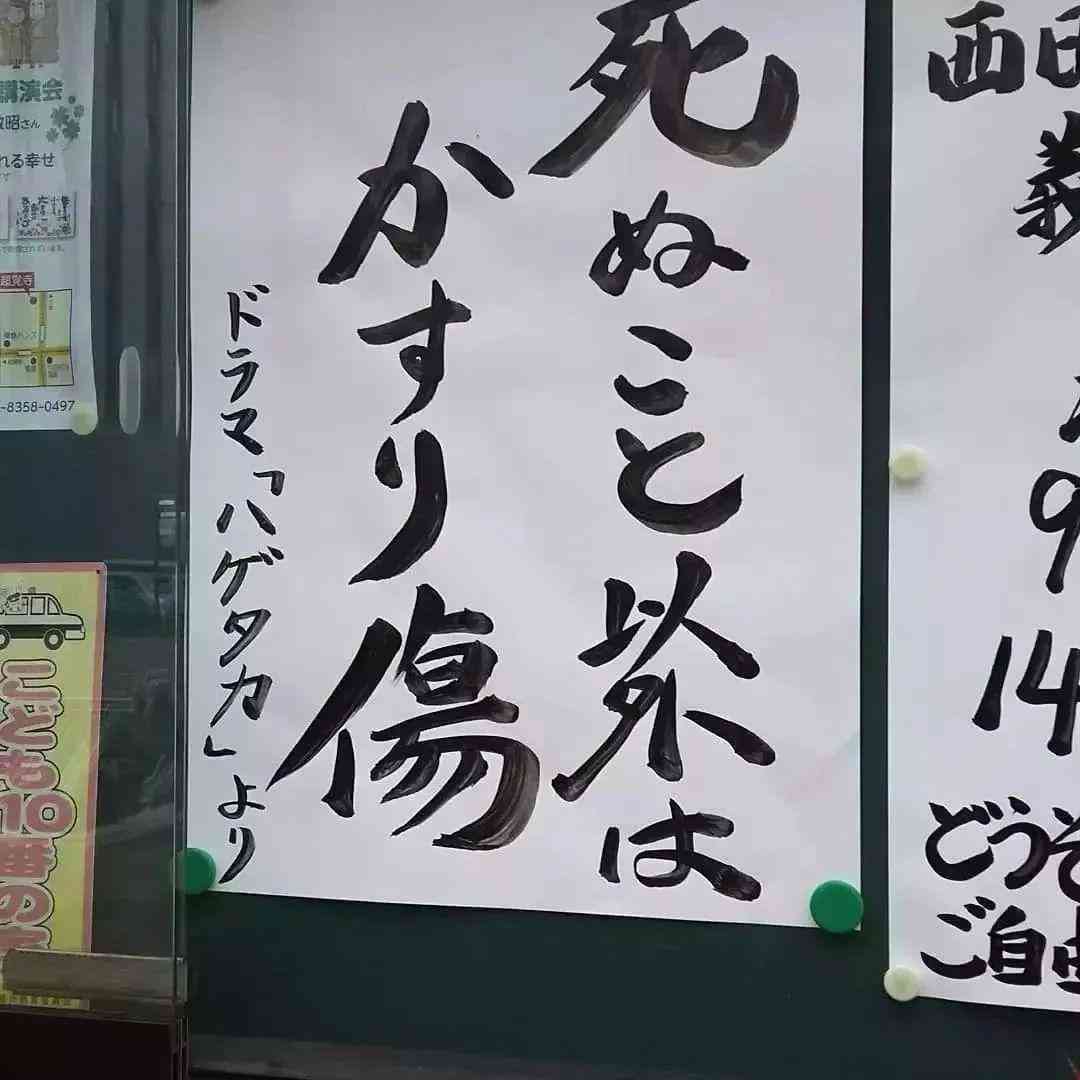 死ぬこと以外は
かすり傷
ドラマ「ハゲタカ」より
講演会
昭さん
れる幸せ
-8358-0497
こども10番の
西田
義
9
14
どうぞ
ご自由